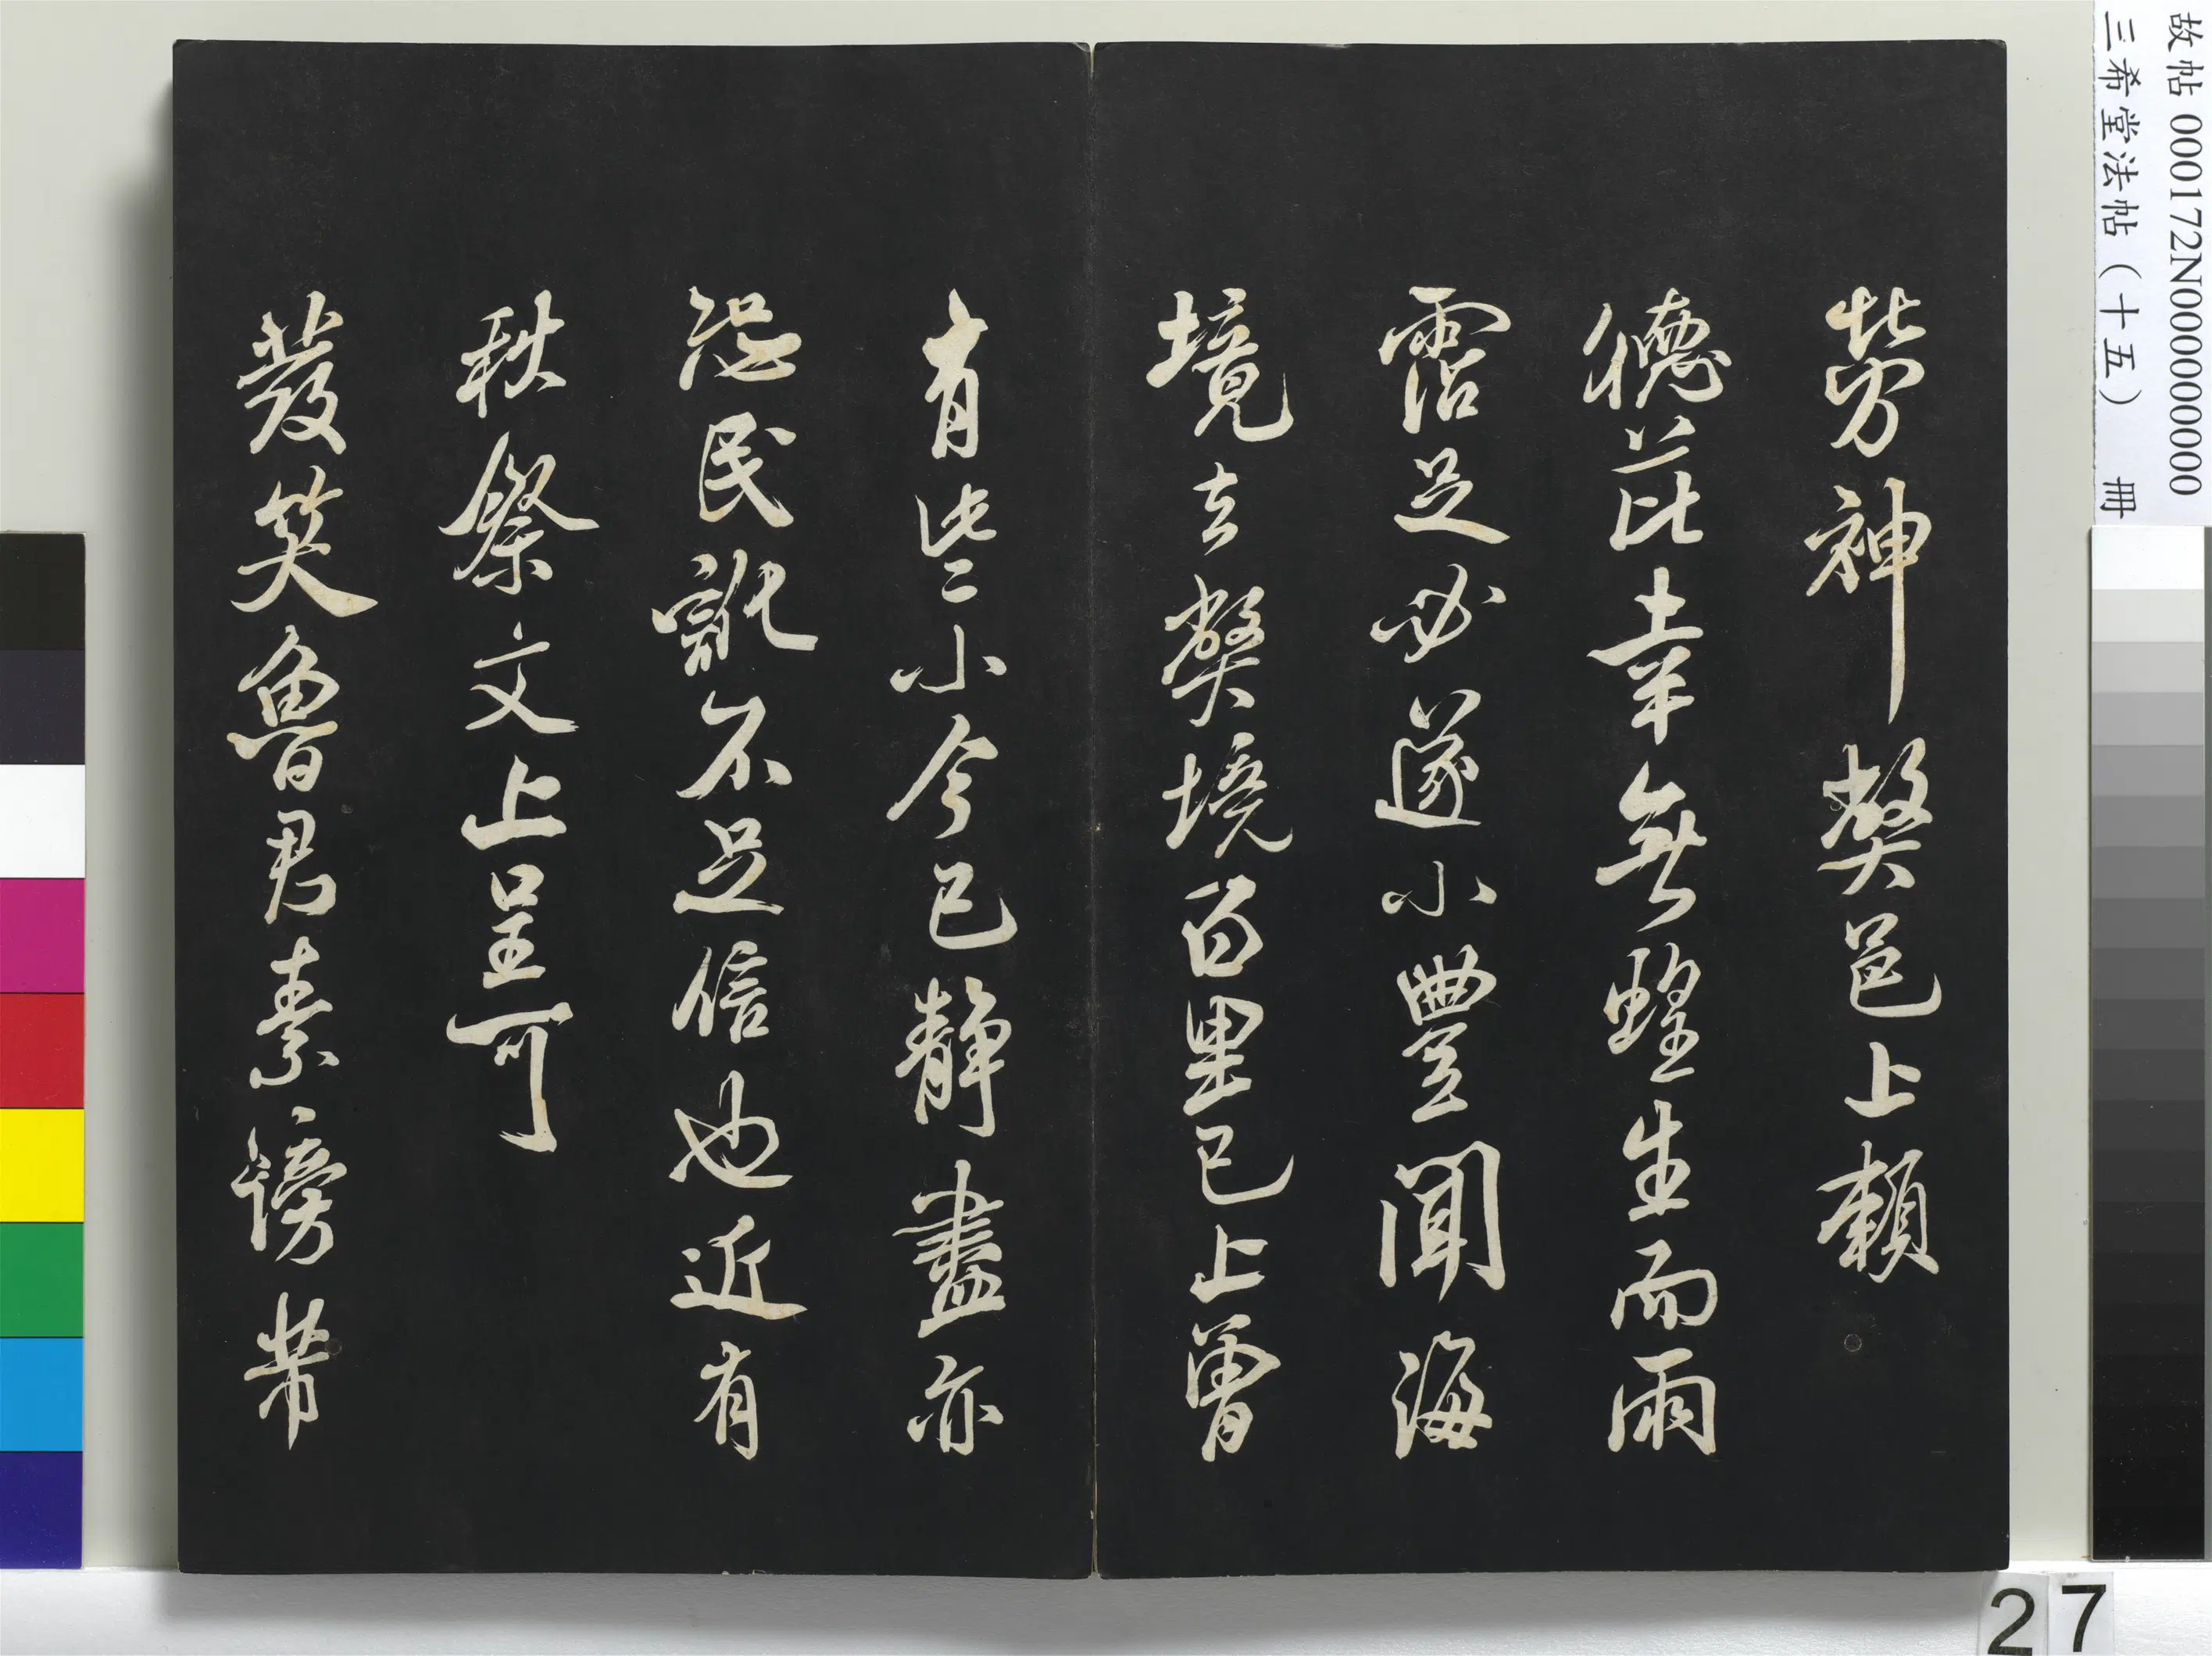 勞神弊邑上賴
德芘幸無蝗生而雨
霑足必遂小豐聞海
境去弊境百里已上曾
有些小今已靜盡亦
恐民訛不足信也近有
秋祭文上呈可
發笑魯君素謗芾
故帖 000172N000000000
三希堂法帖（十五） 冊
27